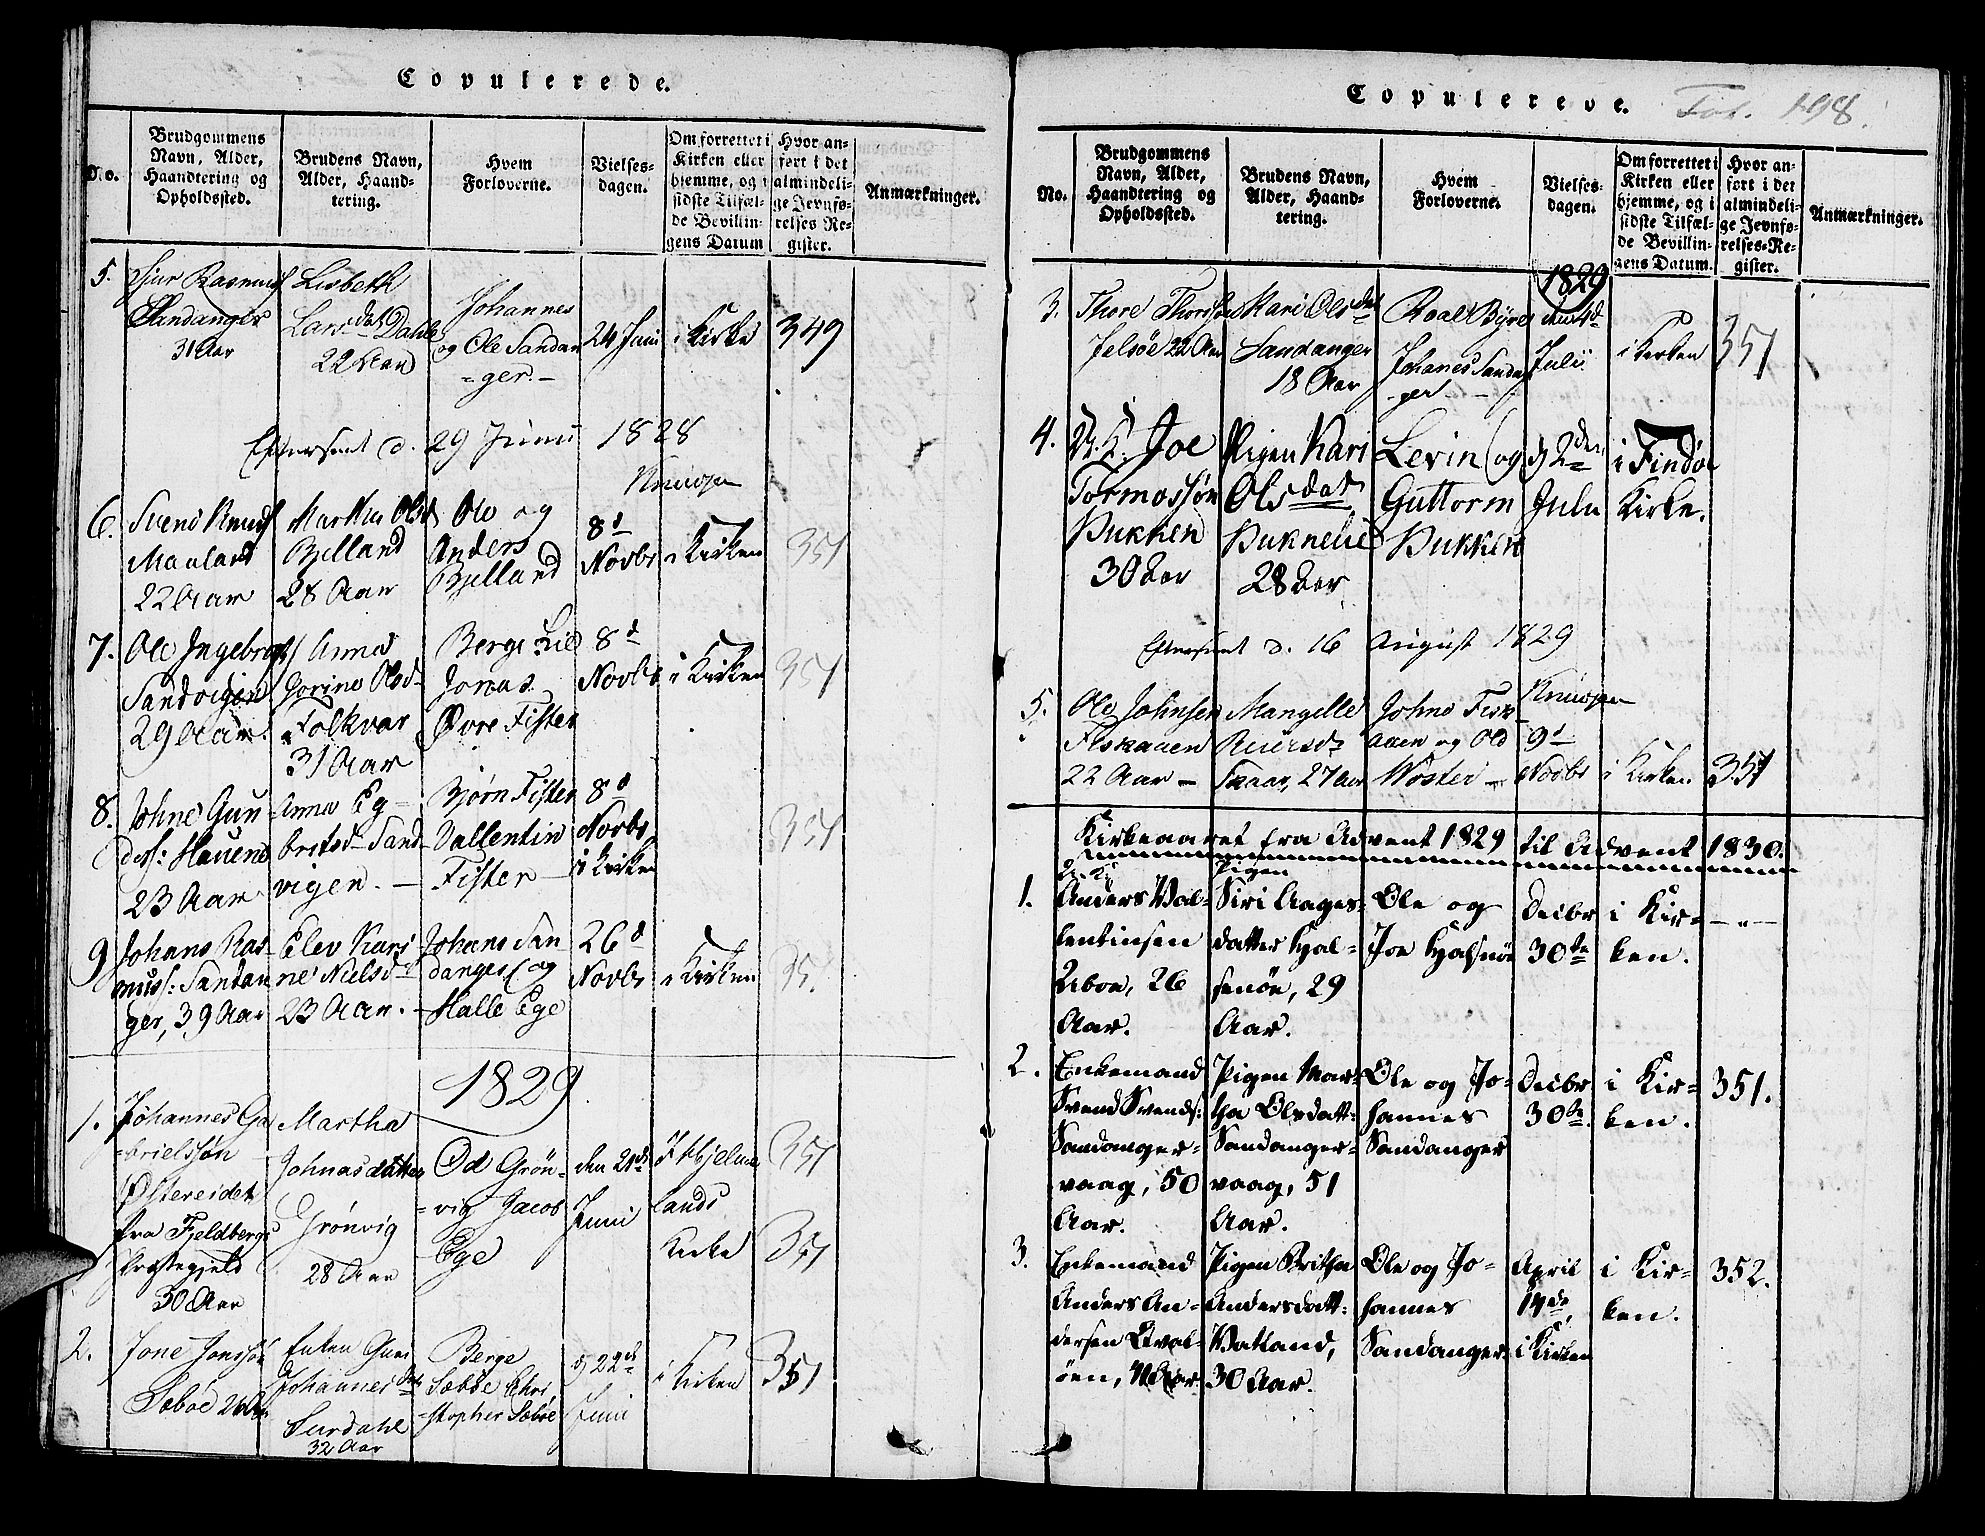 Copulerede.
No.
Brudgommens Navn, Alder, Haandtering og Opholdssted.
Brudens Navn, Alder, Haandtering.
Hvem Forloverne.
Vielsesdagen.
Om forrettet i Kirken eller hjemme, og i sidste Tilfælde Bevillingens Datum
Hvor anført i det almindelige Jevnførelses Register.
Anmærkninger.
5.
Sjur Rasmuss
Sandanger
31 Aar
Lisbeth
Larsdat Dahle
22 Aar
Johannes
og Ole Sandan
=ger.-
24 Juni
i Kirke
349
Efterseet d. 29 Junii 1828
Knudsen
6.
Svend Knuds
Maaland
22 Aar
Martha Olsd
Bjelland
28 Aar
Ole og
Anders
Bjelland
8d
Novbr
i Kirken
351
7.
Ole Ingebrets
Sandvigen
29 Aar
Anna
Gorine Olsd-
Folkvar
31 Aar
Berge Lie
Jonas
Øvre Fister
8d
Novbr
i Kirken
351
8.
Johne Gun
ders: Hauene
23 Aar
Anna Eg-
bretsd Sand-
vigen. -
Bjørn Fister
Vallentin
Fister -
8d
Novbr
i Kirken
351
9
Johans Ras-
muss: Sandan
ger, 39 Aar
Elev Kari
ne Nielsd
23 Aar. -
Johans San
danger og
Halle Ege
26d
Novbr
i Kirken
351
1829
1.
Johannes Ga
=brielssøn
Østereidet
fra Fjeldbergs
Præstegjeld
30 Aar
Martha
Johnasdatter
Grönvig
28 Aar
Od Grön-
=vig Jacob
Ege
den 21de
Juni
I Hjelme
lands
Kirke
351
351
2.
Jone Jonssøn
Sæbøe 26 Aar
Enken Guri
Johannesdat
Surdahl
32 Aar
Berge
Sæbøe Chri
stopher Sæbøe
d 22de
Juni
i Kirken
351
Copulerede.
Fol. 198.
No.
Brudgommens Navn, Alder, Haandtering og Opholdssted.
Brudens Navn, Alder, Haandtering.
Hvem Forloverne.
Vielsesdagen.
Om forrettet i Kirken eller hjemme, og i sidste Tilfælde Bevillingens Datum.
Hvor anført i det almindelige Jevnførelses-Register.
Anmærkninger.
1829
3.
Thore Thorssøn
Jelsøe 22 Aar
Kari Olsdat
Sandanger
18 Aar
Roald Byre
Johanes Sanda
-ger -
den 4de
Julii
i Kirken
351
4.
U. K. Joe
Tormossøn
Pukken
30 Aar
Pigen Kari
Olsdat
Puknelie
28 Aar
Levin og
Guttorm
Pukken
d 2den
Julii
i Findø
Kirke.
Efterseet d. 16 August 1829
Knudsen
5.
Ole Johnsen
Fiskaaen
22 Aar -
Mangelle
Reiersd
Skaar, 27 Aar
Johne Fisk-
aaen og Old
Woster -
9d
Novbr
i Kirken
351
Kirkeaaret fra Advent 1829 til Advent 1830.
1.
U. K.
Anders Val-
lentinsen
Aboe, 26
Aar.
Pigen
Siri Aages-
datter Hjal-
senöe, 29
Aar.
Ole og
Joe Hjalsnöe
Decbr
30te
i Kir-
ken.
-"-
2.
Enkemand
Svend Svends:
Sandanger-
vaag, 50
Aar.
Pigen Mar-
tha Olsdatt:
Sandanger-
vaag, 51
Aar.
Ole og Jo-
hannes
Sandanger
Decbr
30te
i Kir-
ken.
351.
3.
Enkemand
Anders An-
dersen Qval-
öen, Aar.
Pigen Britha
Andersdatt:
Vatland,
30 Aar.
Ole og Jo-
hannes
Sandanger
April
14de,
i Kirken
i Kir-
ken.
352.